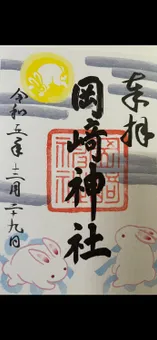 奉拝
岡崎神社
令和五年十二月二十九日